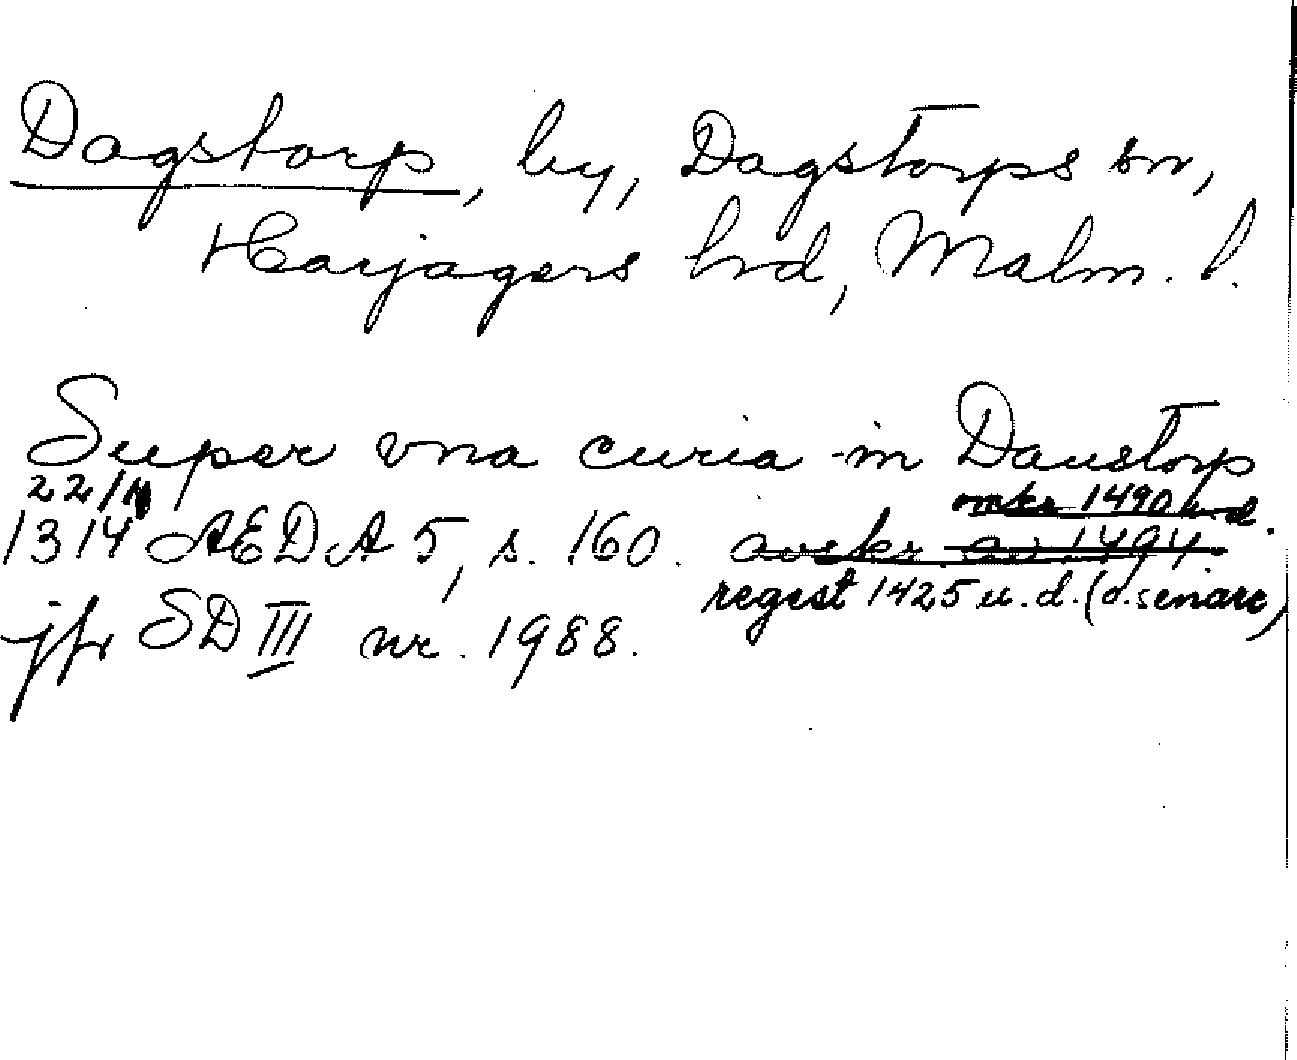 Dagstorp, by, Dagstorps sn,
Harjagers hrd, Malm. l.
Super vna curia in Daustorp
22/11 omkr 1490 u.d.
1314 AEDA 5, s. 160. avskr. av 1494.
regest 1425 u.d. (d. senare)
jfr SD III nr. 1988.